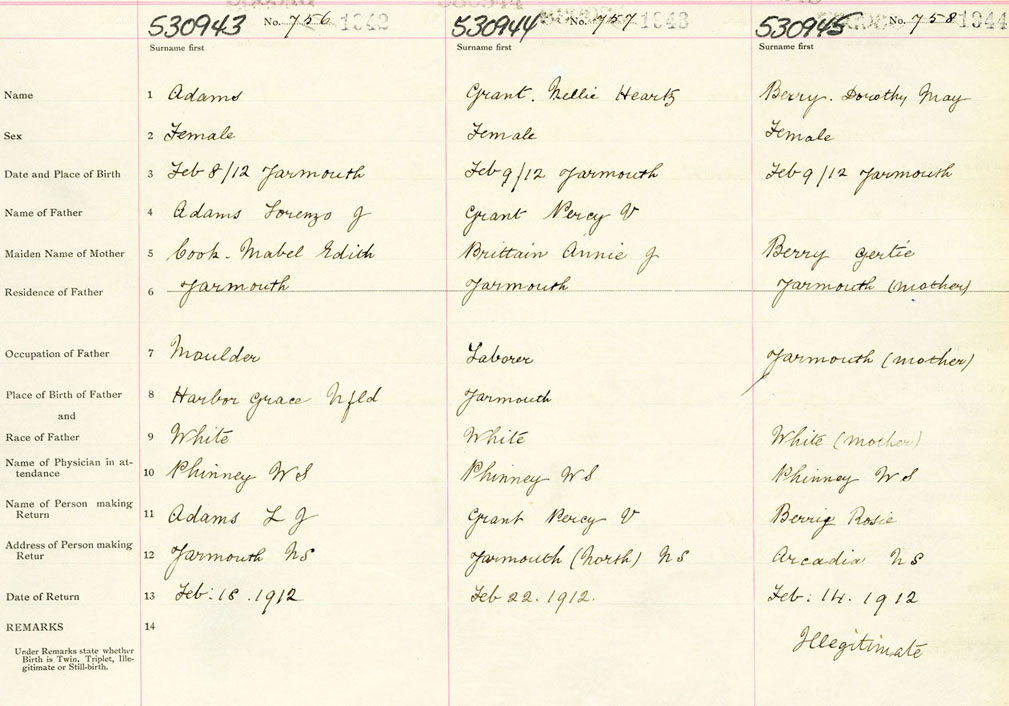 530943 No. 756 1943 530944 No. 757 1943 530945 No. 758 1944
Surname first Surname first Surname first
Name 1 Adams Grant. Nellie Berry. Dorothy May
Sex 2 Female Female Female
Date and Place of Birth 3 Feb 8/12 Yarmouth Feb 9/12 Yarmouth Feb 9/12 Yarmouth
Name of Father 4 Adams Lorenzo J Grant Percy V
Maiden Name of Mother 5 Cook. Mabel Edith Brittain Annie J Berry Gertie
Residence of Father 6 Yarmouth Yarmouth Yarmouth (mother)
Occupation of Father 7 Moulder Laborer Yarmouth (mother)
Place of Birth of Father 8 Harbor Grace Nfld Yarmouth
and
Race of Father 9 White White White (mother)
Name of Physician in at-
tendance 10 Phinney W S Phinney W S Phinney W S
Name of Person making
Return 11 Adams L J Grant Percy V Rosie
Address of Person making
Retur 12 Yarmouth NS Yarmouth (North) NS Arcadia NS
Date of Return 13 Feb: 18 .1912 Feb 22. 1912. Feb: 14. 1912
REMARKS 14
Under Remarks state whether
Birth is Twin, Triplet, Ille-
gitimate or Still-birth.
Illegitimate